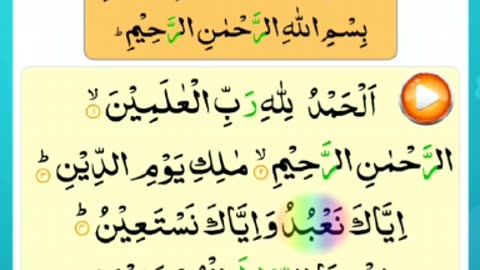 بِسْمِ اللهِ الرَّحْمٰنِ الرَّحِيْمِ
اَلْحَمْدُ لِلّٰهِ رَبِّ الْعٰلَمِيْنَ ۙ﴿۱﴾
الرَّحْمٰنِ الرَّحِيْمِ ۙ﴿۲﴾ مٰلِكِ يَوْمِ الدِّيْنِ ؕ﴿۳﴾
اِيَّاكَ نَعْبُدُ وَاِيَّاكَ نَسْتَعِيْنُ ؕ﴿۴﴾